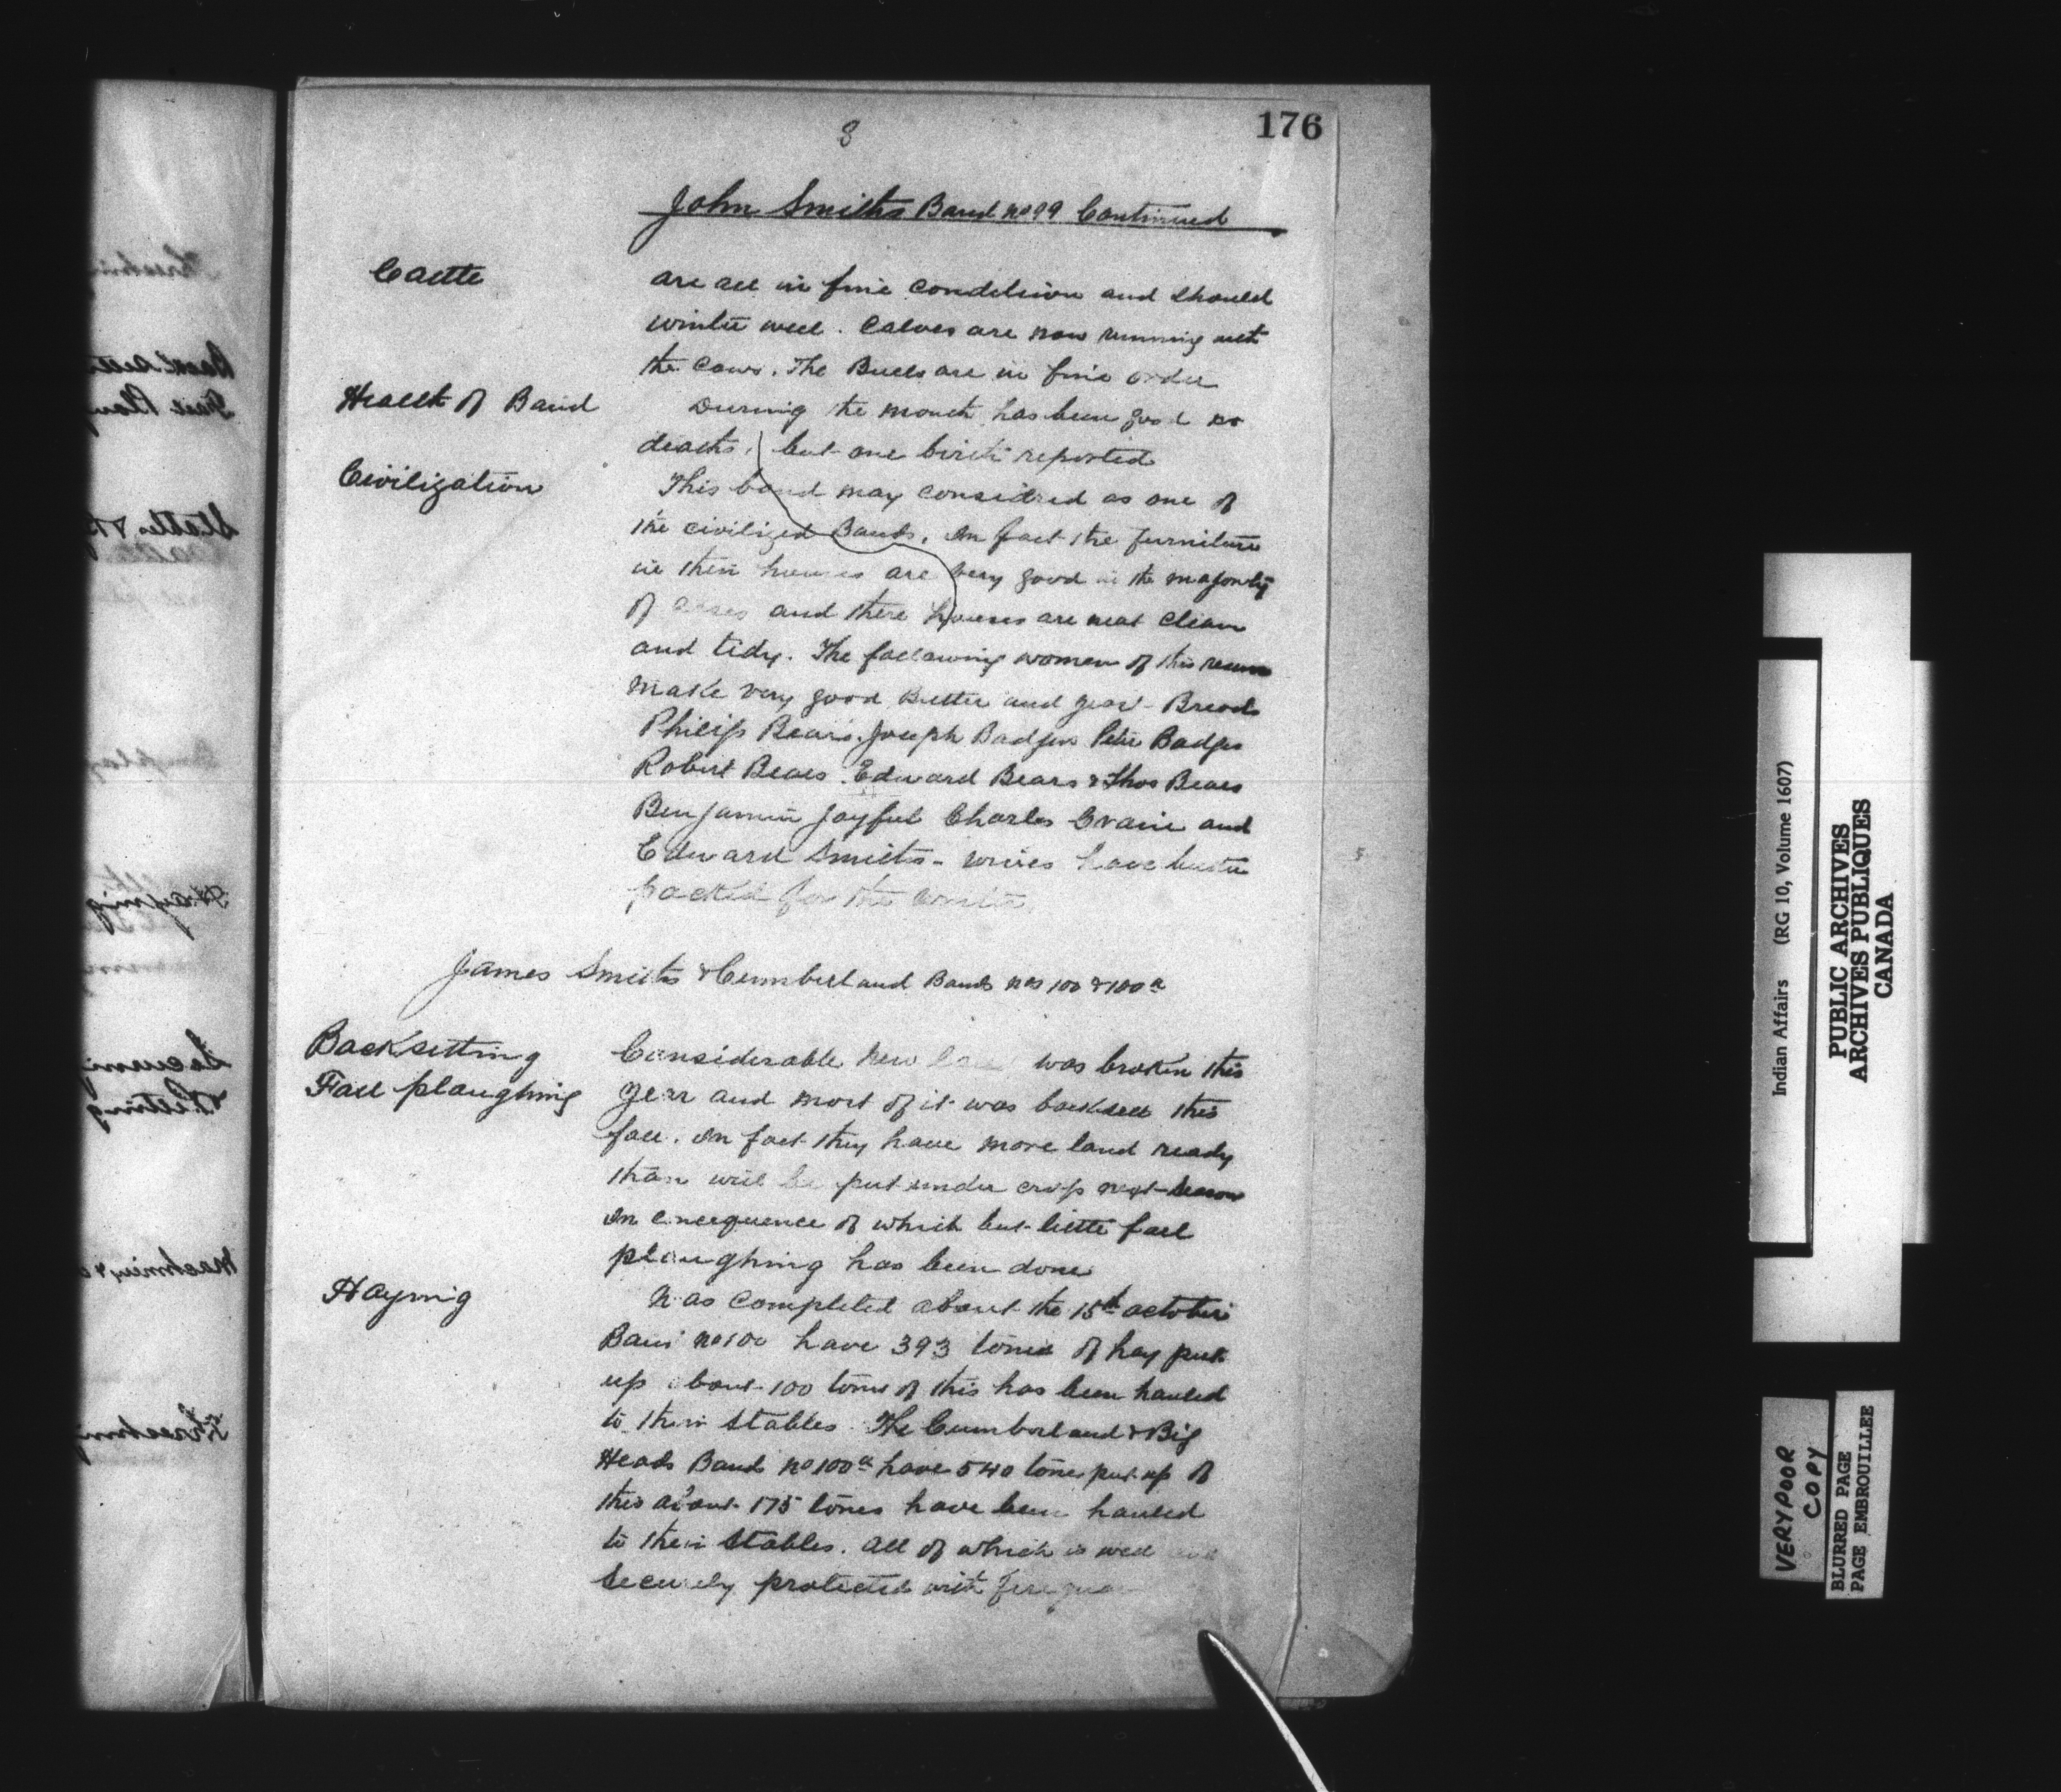 176
8
John Smiths Band no 99 Continued
Cattle
are all in fine condition and should
winter well. Calves are now running with
the Cows. The Bulls are in fine order
Health of Band
During the month has been good no
deaths, but one birth reported
Civilization
This band may considred as one of
the civilized Bands. In fact the furniture
in their houses are very good in the majority
of cases and there houses are neat clean
and tidy. The following women of this
make very good Butter and good Bread
Philip Bears, Joseph Badger Peter Badger
Robert Bears. Edward Bears & Thos Bears
Benjamin Joyful Charles and
Edward Smiths - wives have butter
packed for the winter.
James Smiths & Cumberland Bands nos 100 & 100a
Backsetting
Fall ploughing
Considerable New was broken this
year and most of it was backsett this
fall. In fact they have more land ready
than will be put under crop next season
In consequence of which but little fall
ploughing has been done
Haying
Was completed about the 15th october
Band no 100 have 393 tons of hay put
up about 100 tons of this has been hauled
to their Stables. The Cumberland & Big
Heads Band no 100a have 540 tons put up of
this about 175 tones have been hauled
to their Stables. All of which is well and
Securely protected with fire
Indian Affairs (RG 10, Volume 1607)
PUBLIC ARCHIVES
ARCHIVES PUBLIQUES
CANADA
VERY POOR
COPY
BLURED PAGE
PAGE EMBROUILLEE